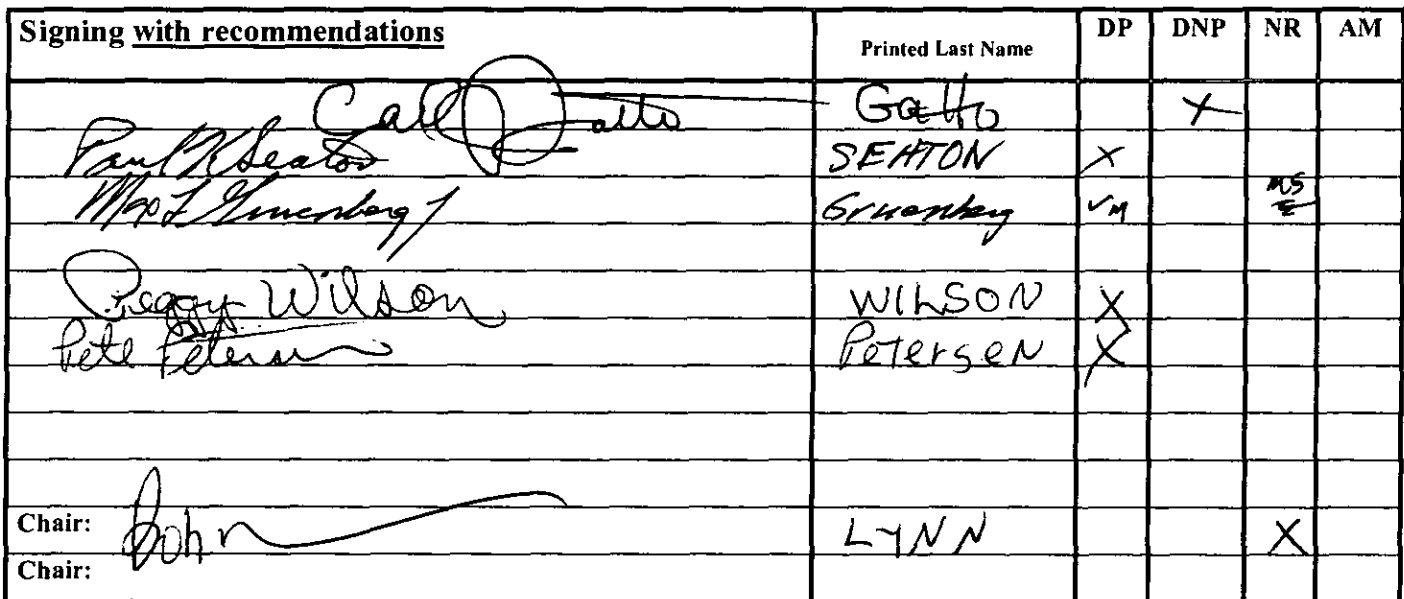 Signing with recommendations Printed Last Name DP DNP NR AM
Carl Gatto Gatto X
Paul K Seaton SEATON X
Max F Gruenberg Jr Gruenberg ✓M
Peggy Wilson WILSON X
Pete Petersen Petersen X
Chair: LYNN X
Chair: